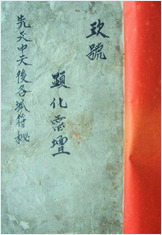 玖號
顯化靈壇
先天中天後各派符秘